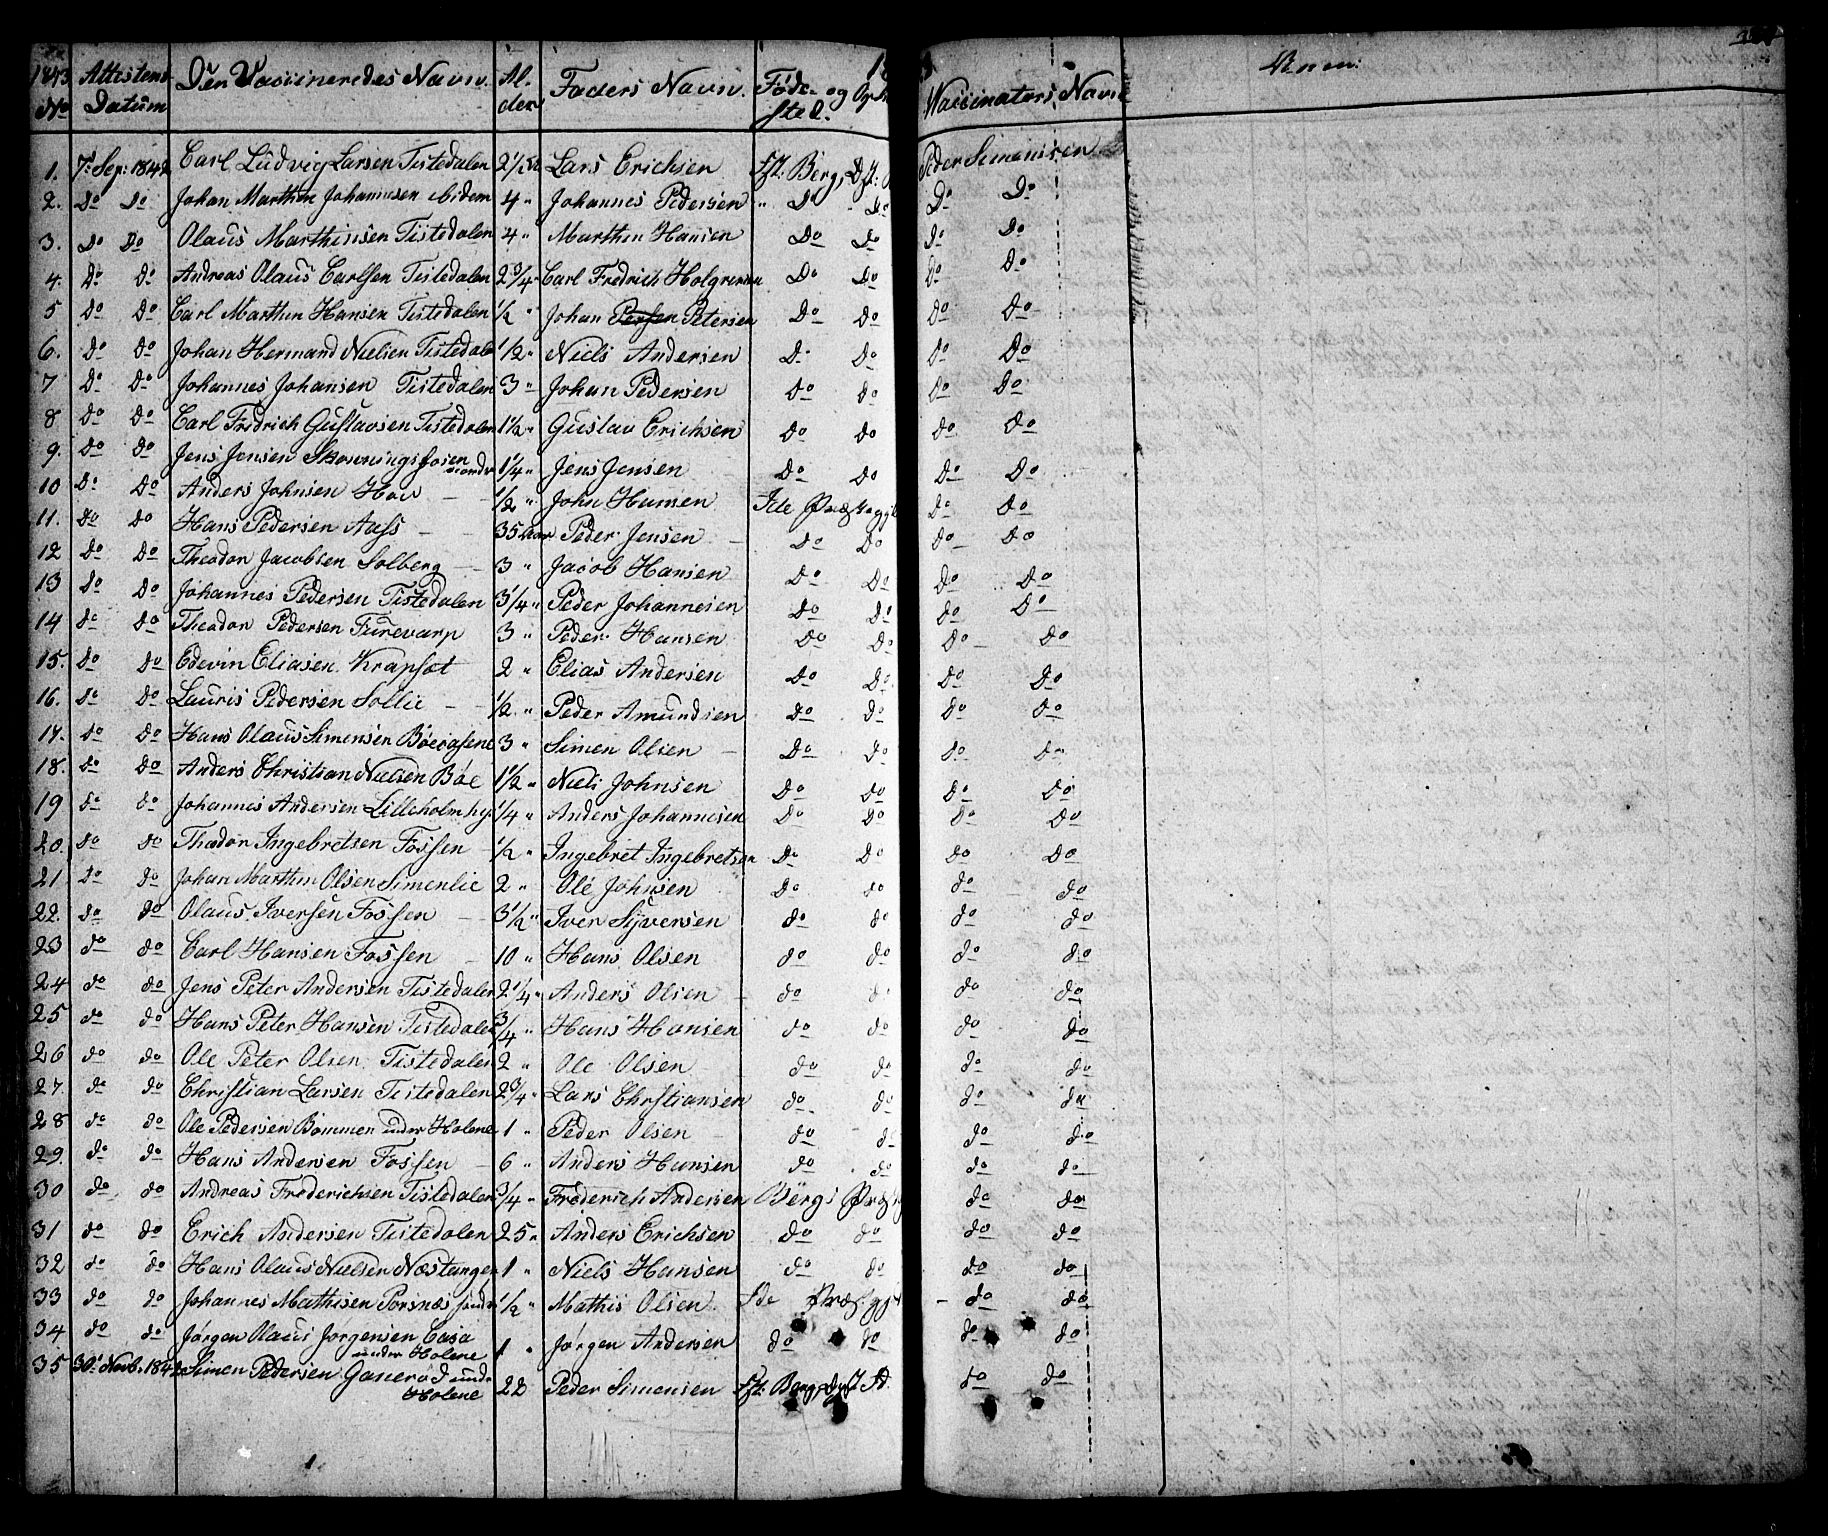 1843 Attistens Den Vaccineredes Navn. Al- Faders Navn. Føde- og Vaccinators Navn Anm:
No Datum der sted.
1. 7 Sep: 184 Carl Ludvig Larsen Tistedalen 2 1/2 Lars Erichsen Ft: Berg, Peder Simensen
2. Do Do Johan Marthin Johannesen ibidem 4 " Johannes Pedersen " Do Do Do Do
3. Do Do Olaus Marthinsen Tistedalen 4 " Marthin Hansen Do Do Do Do
4. Do Do Andreas Olaus Carlsen Tistedalen 2 3/4 " Carl Fredrich Holgrensen Do Do Do Do
5 Do Do Carl Marthin Hansen Tistedalen 1/2 " Johan Petersen Do Do Do Do
6. Do Do Johan Hermand Nielsen Tistedal 1/2 " Niels Andersen Do Do Do Do
7 Do Do Johannes Johansen Tistedalen 3 " Johan Pedersen Do Do Do Do
8 Do Do Carl Fredrich Gustavsen Tistedalen 1 1/2 " Gustav Erichsen Do Do Do Do
9. Do Do Jens Jensen 1 1/4 " Jens Jensen Do Do Do Do
10 Do Do Anders Johnsen Hov — — 1/2 " John Hansen Ide Do Do
11. Do Do Hans Pedersen Aass — 35 Aar Peder Jensen — Do Do Do Do
12 Do Do Theodor Jacobsen Solberg — 3 " Jacob Hansen Do Do Do Do
13 Do Do Johannes Pedersen Tistedalen 3 1/4 " Peder Johannesen Do Do Do Do
14 Do Do Theodor Pedersen 3 " Peder Hansen Do Do Do Do
15. Do Do Edevin Eliasen Krapfot 2 " Elias Andersen Do Do Do Do
16. Do Do Lauris Pedersen Sollie — 1/2 " Peder Amundsen Do Do Do Do
17. Do Do Hans Olaus Simensen 3 " Simen Olsen — Do Do Do Do
18. Do Do Anders Christian Nielsen Bøe 1 1/2 " Niels Johnsen Do Do Do Do
19 do do Johannes Andersen Lilleholm 1/4 " Anders Johannesen Do Do Do Do
20. do do Theodor Ingebretsen Fossen — 1/2 " Ingebret Ingebretsen Do Do Do Do
21 Do do Johan Marthin Olsen Simenlie 2 " Ole Johnsen Do do do do
22. do do Olaus Iversen Fossen — 3 1/2 " Iver Syversen do do do do
23 do do Carl Hansen Fossen — 10 " Hans Olsen do do do do
24 do do Jens Peter Andersen Tistedalen 2 1/4 " Anders Olsen — do do do do
25 do do Hans Peter Hansen Tistedalen 3/4 " Hans Hansen do do do do
26 do do Ole Peter Olsen Tistedalen 2 " Ole Olsen do do do do
27. do do Christian Larsen Tistedalen 2 3/4 " Lars Christiansen do do do do
28 do do Ole Pedersen Bommen under Holene 1 " Peder Olsen do do do do
29. do do Hans Andersen Fossen — 6 " Anders Hansen do do do do
30 do do Andreas Frederichsen Tistedalen 3/4 " Frederich Andersen Bergs Præst do do
31 do do Erich Andersen Tistedalen 25 " Anders Erichsen do do do do
32 do do Hans Olaus Nielsen Næstangen 1 " Niels Hansen do do do do
33 do do Johannes Mathisen 1/2 " Mathis Olsen Ide Præst do do
34 do do Jørgen Olaus Jørgensen Casa 1 " Jørgen Andersen do do do do
under Holene
35 30 Novb. 184 Simen Pedersen under 22 Peder Simensen Ft: Berg, do do
Holene